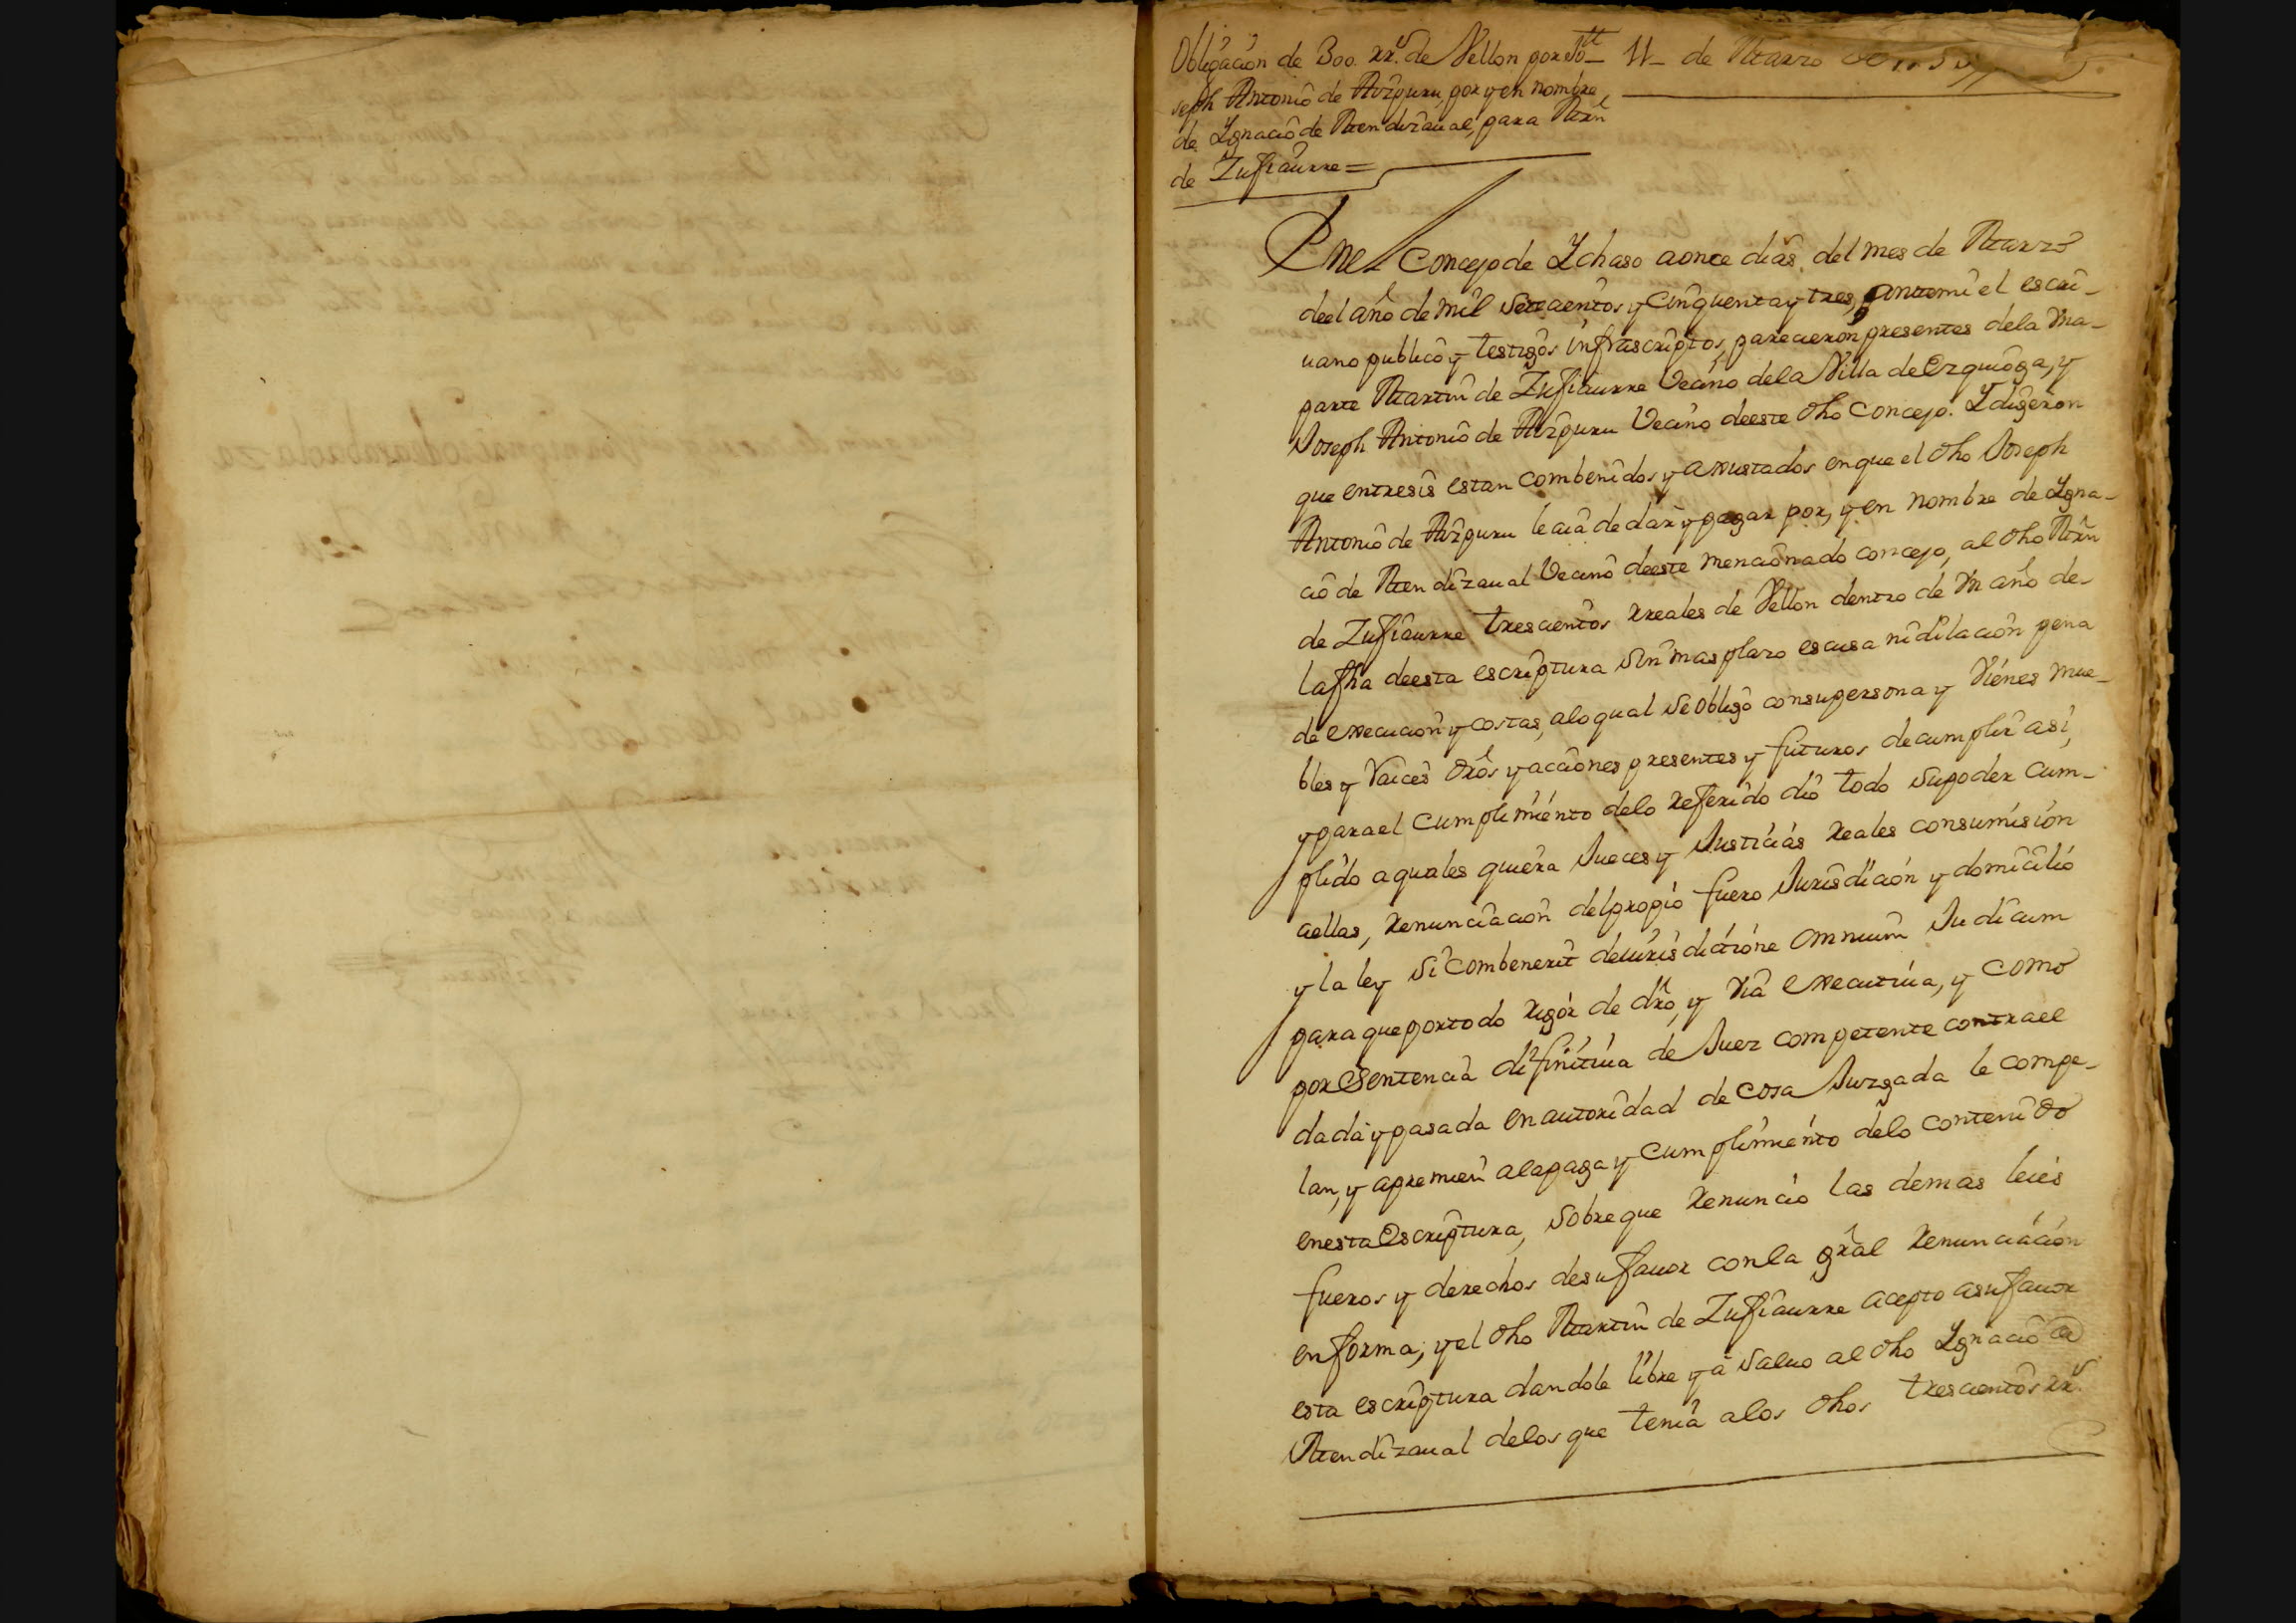 Obligacion de 300. rr.ˢ de Vellon por Jo-
seph Antonio de Aizpuru, por y en nombre
de Ygnacio de Mendizaual, para Mrn
de Zufiaurre =
11- de Marzo
En el Concejo de Ychaso a once dias del mes de Marzo
deel año de mil setecientos y cinquenta y tres, antemi el escri-
uano publico y testigos infrascriptos, parecieron presentes dela vna-
parte Martin de Zufiaurre Vecino dela Villa de Ezquioga, y
Joseph Antonio de Aizpuru Vecino deeste dho Concejo. Y digeron
que entresis estan combenidos y axustados enque el dho Joseph
Antonio de Aizpuru le aia de dar y pagar por, y en nombre de Ygna-
cio de Mendizaual Vecino deeste mencionado concejo, al dho Mrn
de Zufiaurre trescientos rreales de Vellon dentro de vn año de-
la fha deesta escriptura sin mas plazo escusa ni dilacion pena
de execucion y costas, alo qual se obligo consupersona y Vienes mue-
bles y Raices dros y acciones presentes y futuros de cumplir asi,
y para el cumplimiento delo referido dio todo supoder cum-
plido a quales quiera Jueces y Justicias Reales consumision
aellas, renunciacion del propio fuero Jurisdicion y domicilio
y la ley si combenerit de iurisdictione omnium Judicum
para que por todo rigor de dro, y Via executiua, y como
por Sentencia difinitiua de Juez competente contra el
dada y pasada en autoridad de cosa Juzgada le compe-
lan, y apremien ala paga y cumplimiento delo contenido
enesta Escriptura, sobre que renuncio las demas leies
fueros y derechos desufauor con la gral renunciacion
en forma; y el dho Martin de Zufiaurre acepto asufauor
esta escriptura dandole libre y a saluo al dho Ygnacio de
Mendizaual delos que tenia a los dhos trescientos rr.ˢ